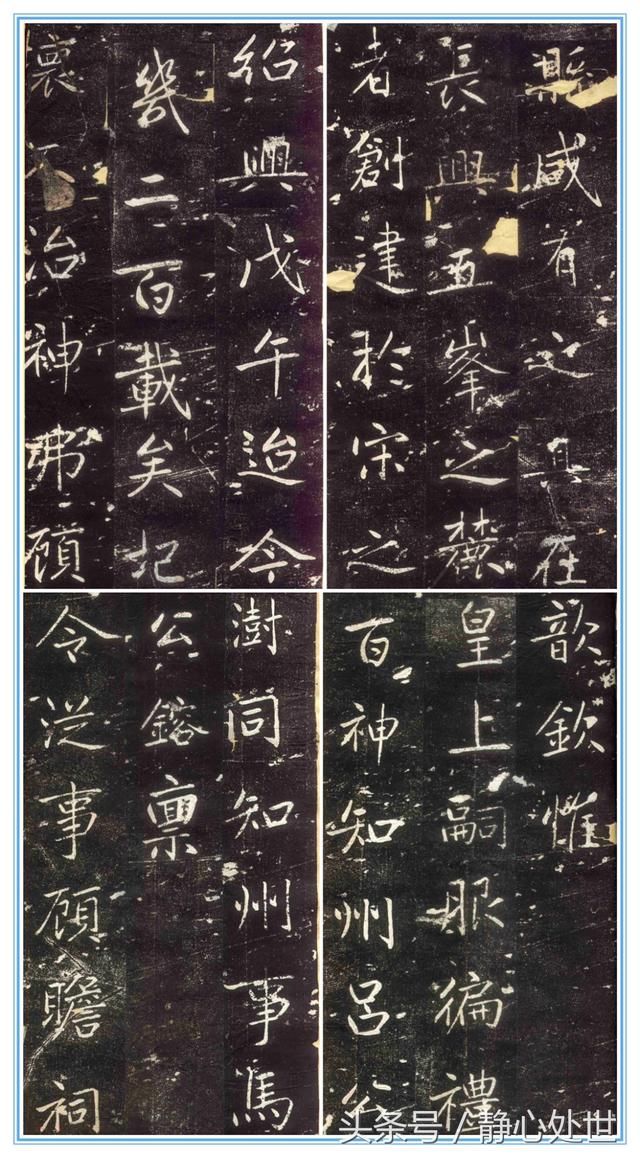 縣咸有之其在
長興五峯之麓
者創建於宋之
紹興戊午迨今
幾二百載矣圮
壞不治神弗顧
歆欽惟
皇上嗣服徧禮
百神知州呂公
澍同知州事馬
公鎔禀
令從事顧瞻祠
头条号 / 静心处世